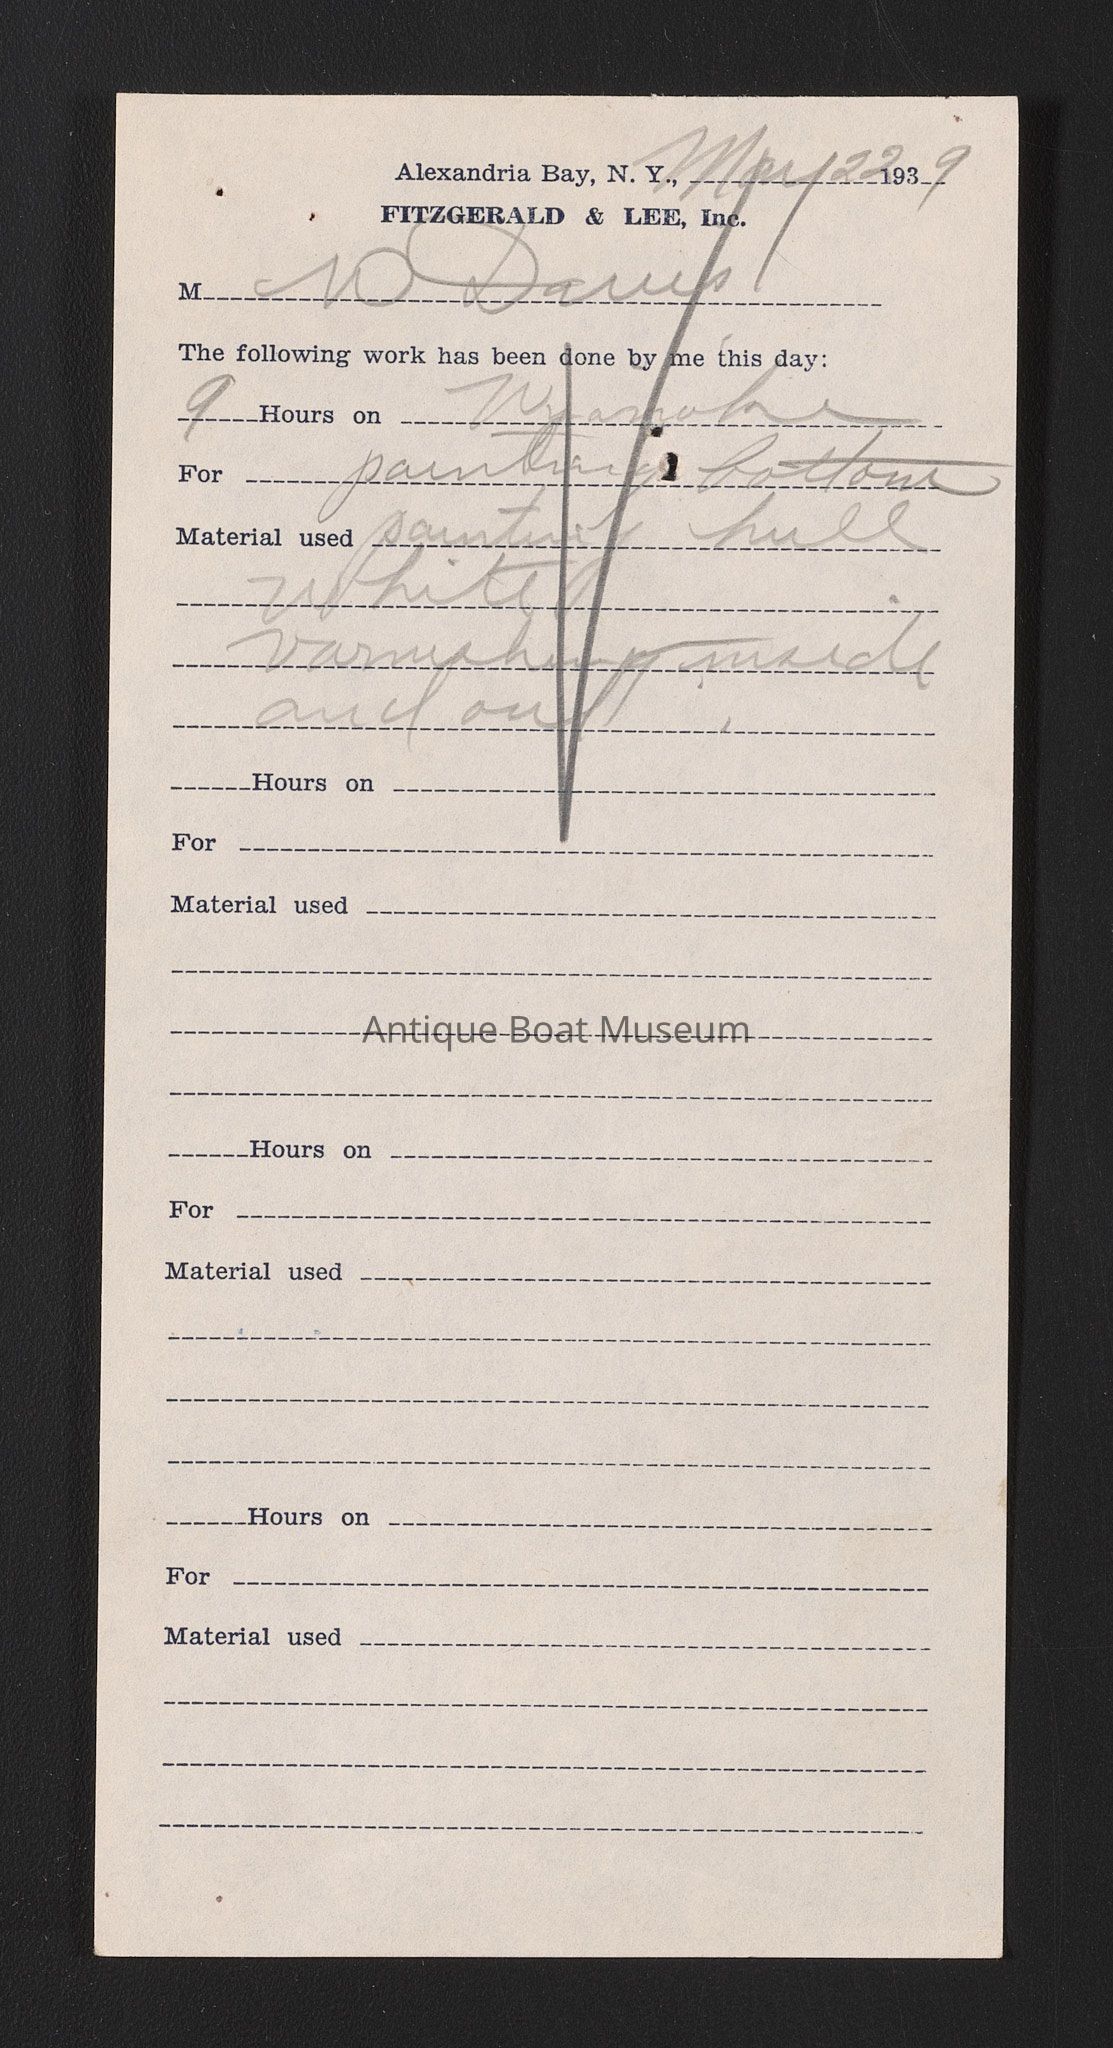 Alexandria Bay, N. Y., May 22 1939
FITZGERALD & LEE, Inc.
M Davis
The following work has been done by me this day:
9 Hours on
For painting bottom
Material used painting hull
white
varnishing inside
and out.
Hours on
For
Material used
Antique Boat Museum
Hours on
For
Material used
Hours on
For
Material used